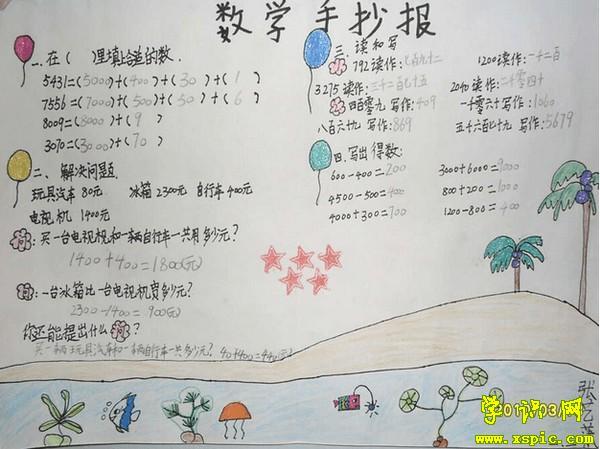 数学手抄报
一.在( )里填上合适的数.
5431=(5000)+(400)+(30)+(1)
7556=(7000)+(500)+(50)+(6)
8009=(8000)+(9)
3070=(3000)+(70)
二、解决问题.
玩具汽车80元. 冰箱2300元 自行车400元
电视机 1400元
问:买一台电视机和一辆自行车一共用多少元?
1400+400=1800(元)
问:一台冰箱比一台电视机贵多少元?
2300-1400=900(元)
你还能提出什么问?
买一辆玩具汽车和一辆自行车一共多少元?
三.读和写
792读作:七百九十二 1200读作:一千二百
3275读作:三千二百七十五 2040读作:二千零四十
四百零九 写作:409 一千零六十 写作:1060
八百六十九 写作:869 五千六百七十九 写作:5679
四.写出得数:
600-400=200 3000+6000=9000
4500-500= 800+200=1000
4000+300= 1200-800=400
学识网
www.xspic.com